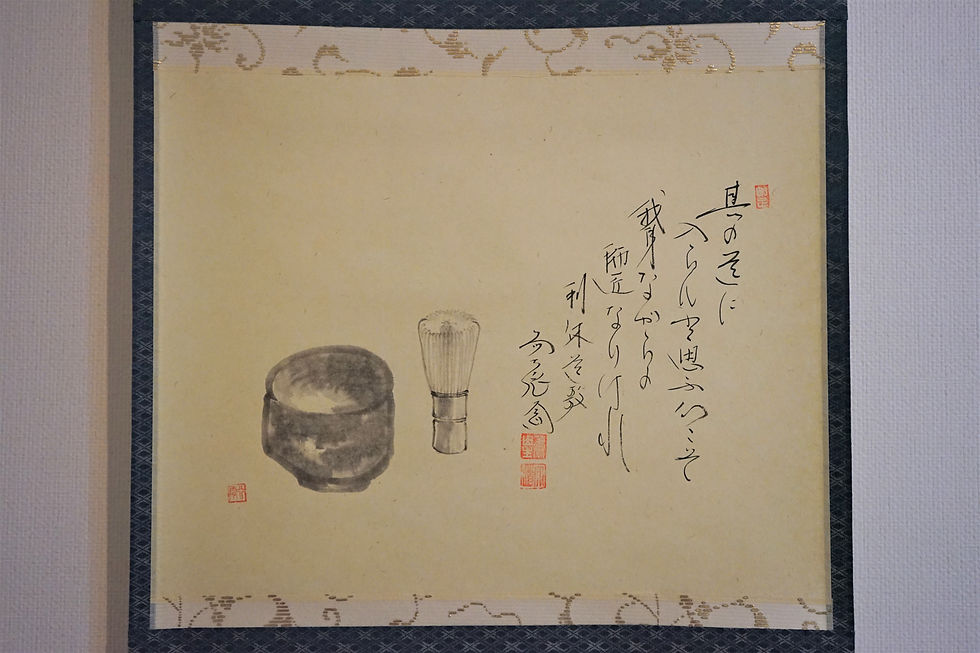 其の道に
入らんと思ふ心こそ
我身ながらの
師匠なりけれ
利休道歌